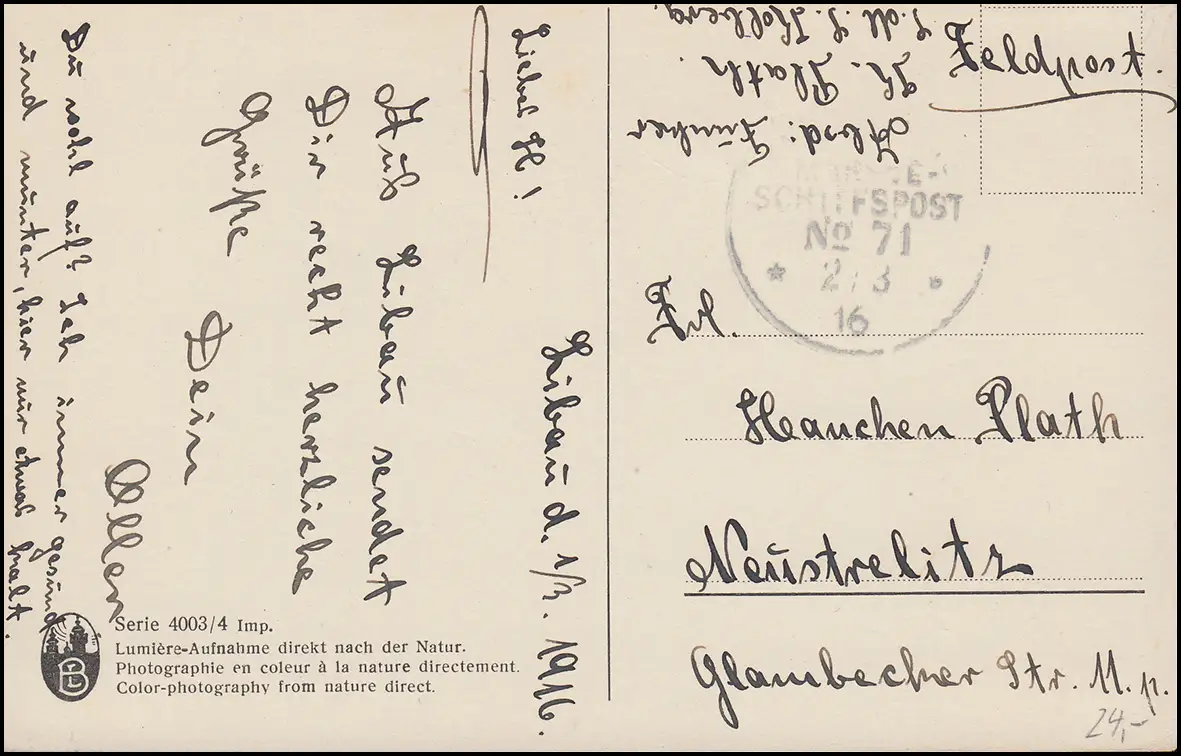 Libau d. 1/3. 1916.
Liebes H!
Aus Libau sendet
Dir recht herzliche
Grüße
Dein
Du wohl auf? Ich immer gesund
und munter, hier nur etwas kalt.
Serie 4003/4 Imp.
Lumière-Aufnahme direkt nach der Natur.
Photographie en coleur à la nature directement.
Color-photography from nature direct.
Feldpost.
Absd: Funker
Plath
S.M.S. Kolberg.
MARINE-
SCHIFFSPOST
No 71
* 2/3 *
16
Frl.
Hanchen Plath
Neustrelitz
Glambecher Str. 11. p.
24,-